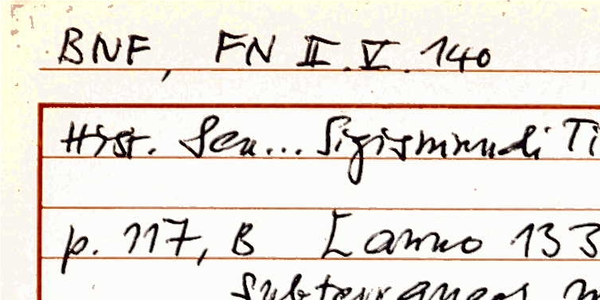 BNF, FN II.V.140
Hist. Sen... Sigismundi Ti
p. 117, B [anno 133
Subterraneos m